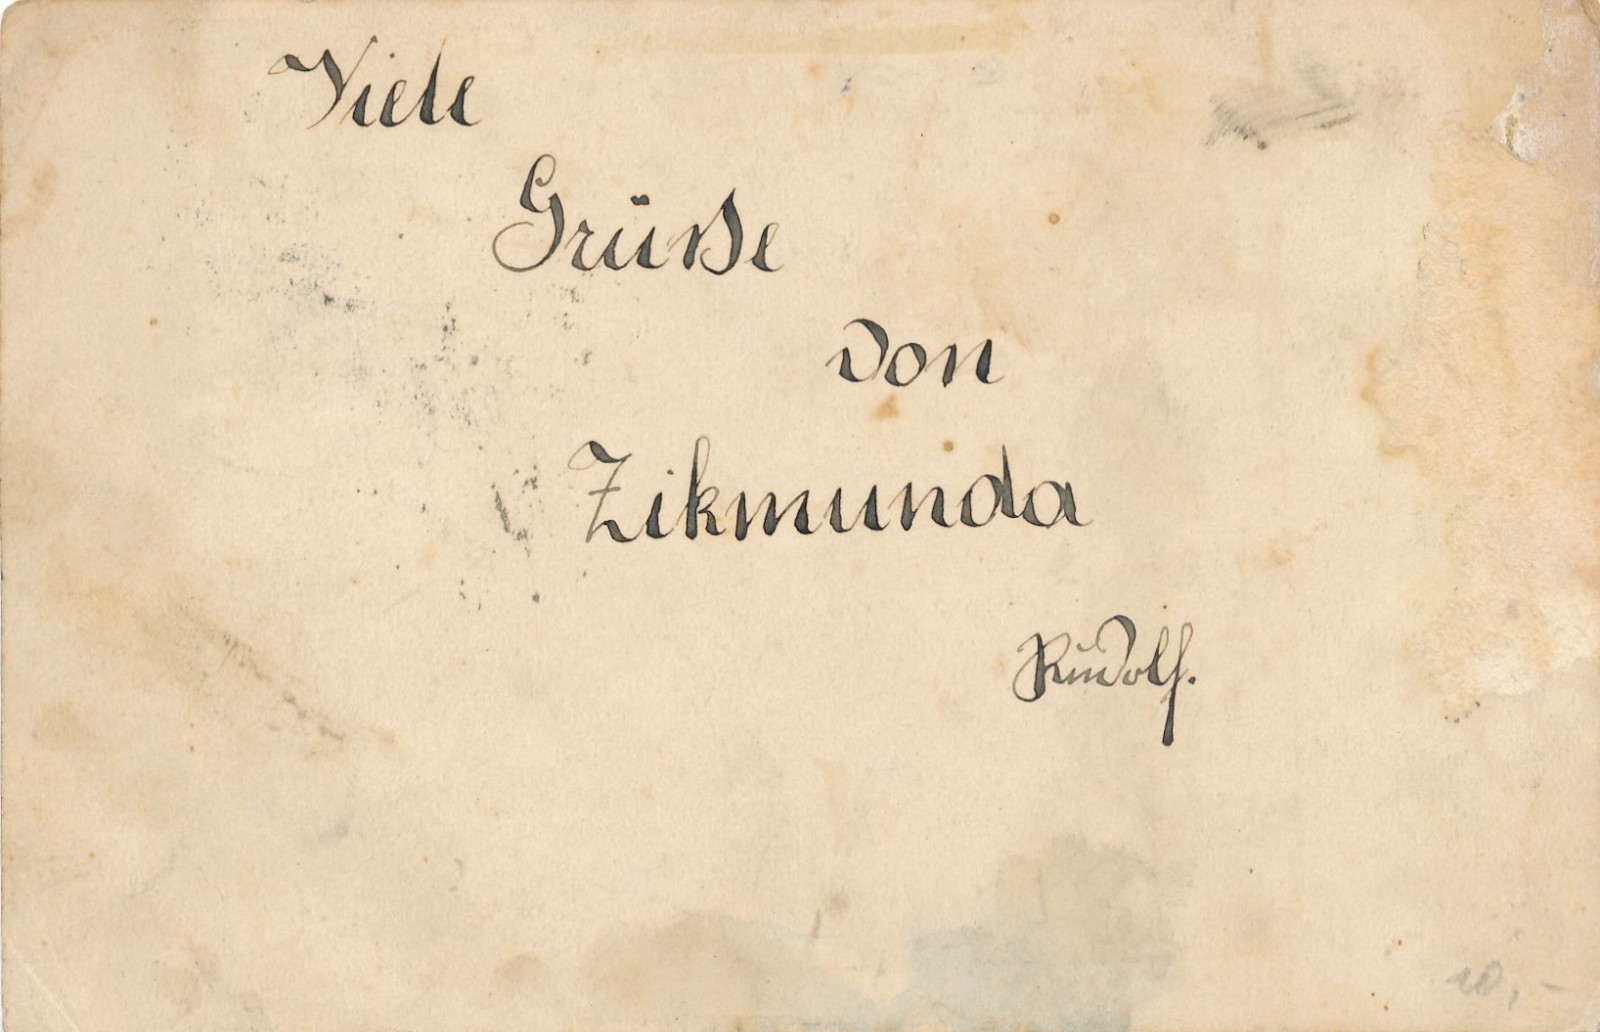 Viele
Grüße
von
Zikmunda
Rudolf.
10,-